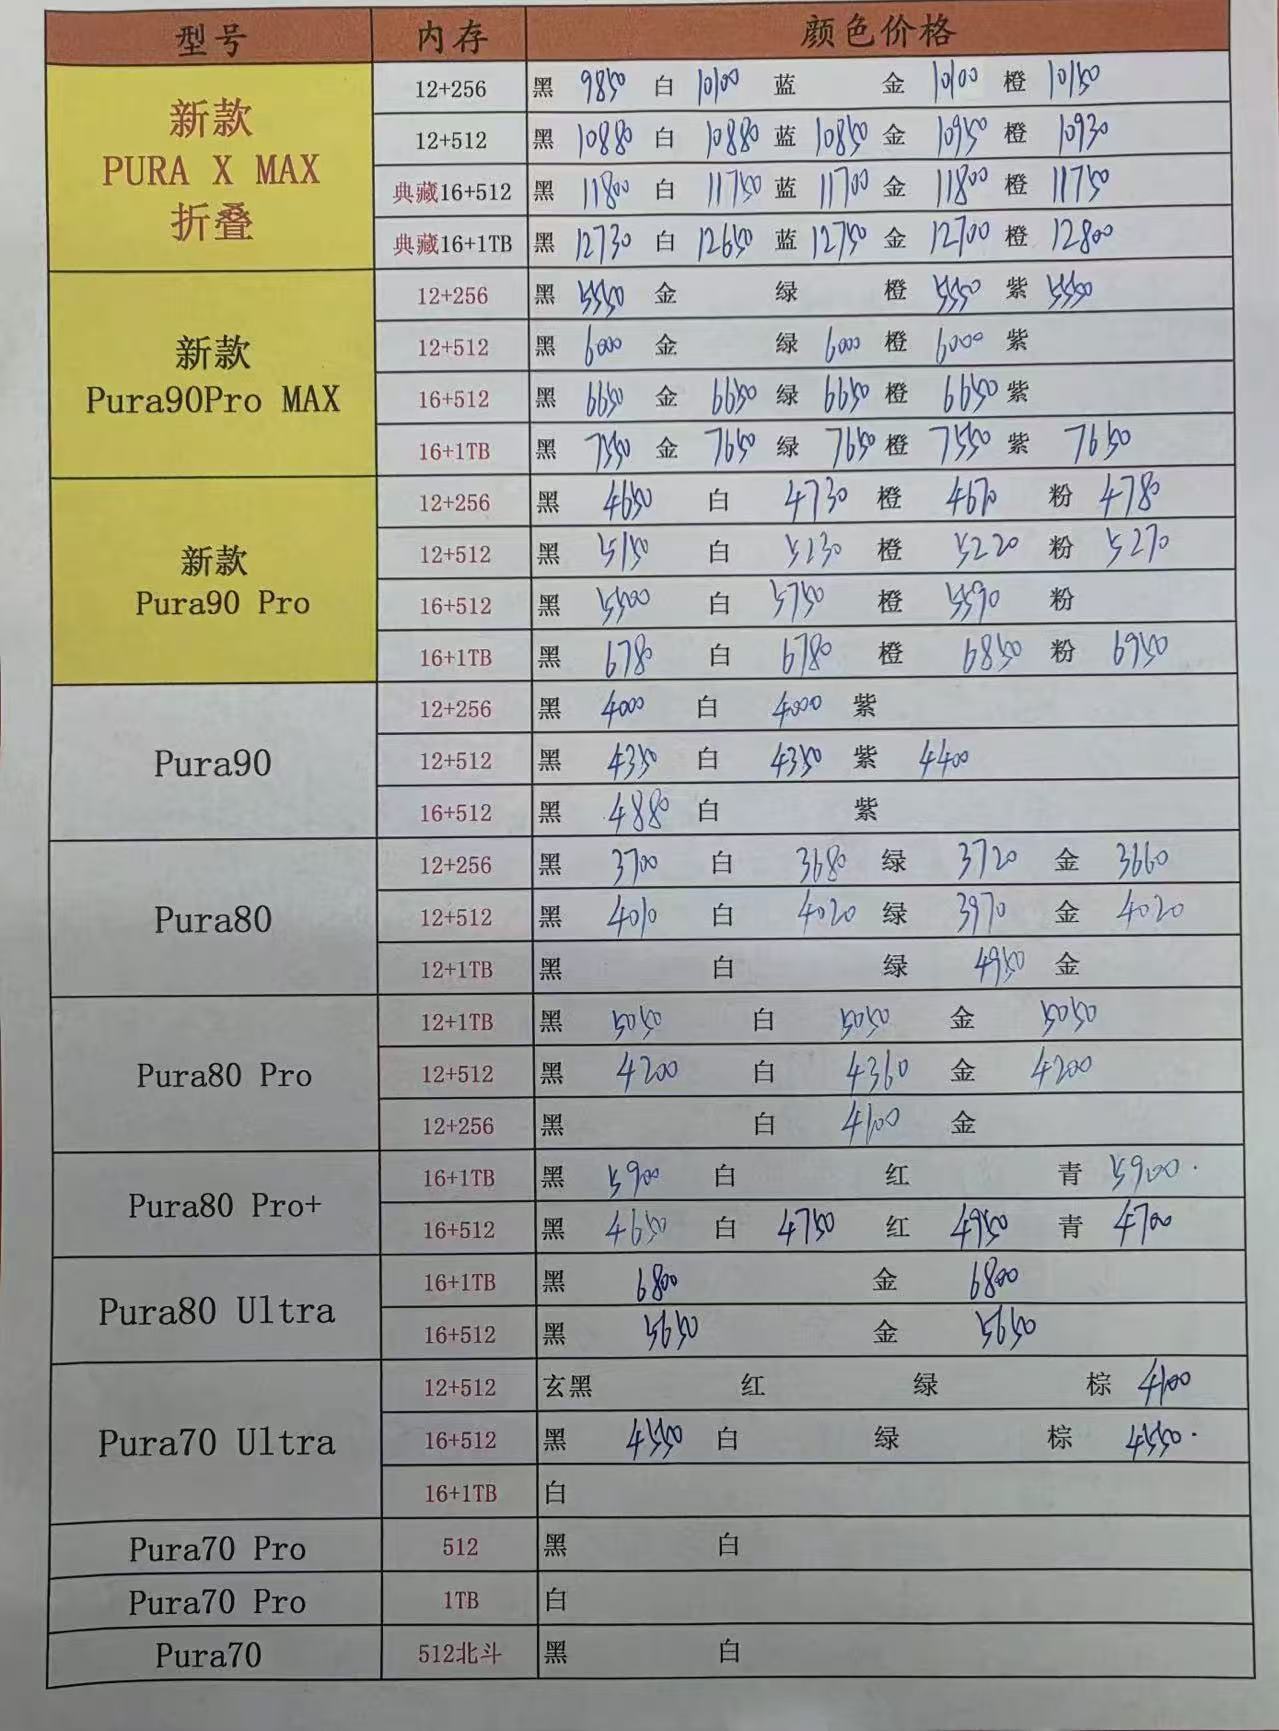 型号 内存 颜色价格
新款 PURA X MAX 折叠
12+256 黑 9850 白 10100 蓝 金 10100 橙 10150
12+512 黑 10880 白 10880 蓝 10850 金 10950 橙 10930
典藏16+512 黑 11800 白 11750 蓝 11700 金 11800 橙 11750
典藏16+1TB 黑 12730 白 12650 蓝 12750 金 12700 橙 12800
新款 Pura90Pro MAX
12+256 黑 5550 金 绿 橙 5550 紫 5550
12+512 黑 6000 金 绿 6000 橙 6000 紫
16+512 黑 6650 金 6650 绿 6650 橙 6650 紫
16+1TB 黑 7550 金 7650 绿 7650 橙 7550 紫 7650
新款 Pura90 Pro
12+256 黑 4650 白 4730 橙 4670 粉 4780
12+512 黑 5150 白 5230 橙 5220 粉 5270
16+512 黑 5500 白 5750 橙 5590 粉
16+1TB 黑 6780 白 6780 橙 6850 粉 6950
Pura90
12+256 黑 4000 白 4000 紫
12+512 黑 4350 白 4350 紫 4400
16+512 黑 4880 白 紫
Pura80
12+256 黑 3700 白 3680 绿 3720 金 3660
12+512 黑 4010 白 4020 绿 3970 金 4020
12+1TB 黑 白 绿 4950 金
Pura80 Pro
12+1TB 黑 5050 白 5050 金 5050
12+512 黑 4200 白 4360 金 4200
12+256 黑 白 4100 金
Pura80 Pro+
16+1TB 黑 5900 白 红 青 5900.
16+512 黑 4650 白 4750 红 4950 青 4700
Pura80 Ultra
16+1TB 黑 6800 金 6800
16+512 黑 5650 金 5650
Pura70 Ultra
12+512 玄黑 红 绿 棕 4100
16+512 黑 4550 白 绿 棕 4550.
16+1TB 白
Pura70 Pro 512 黑 白
Pura70 Pro 1TB 白
Pura70 512北斗 黑 白